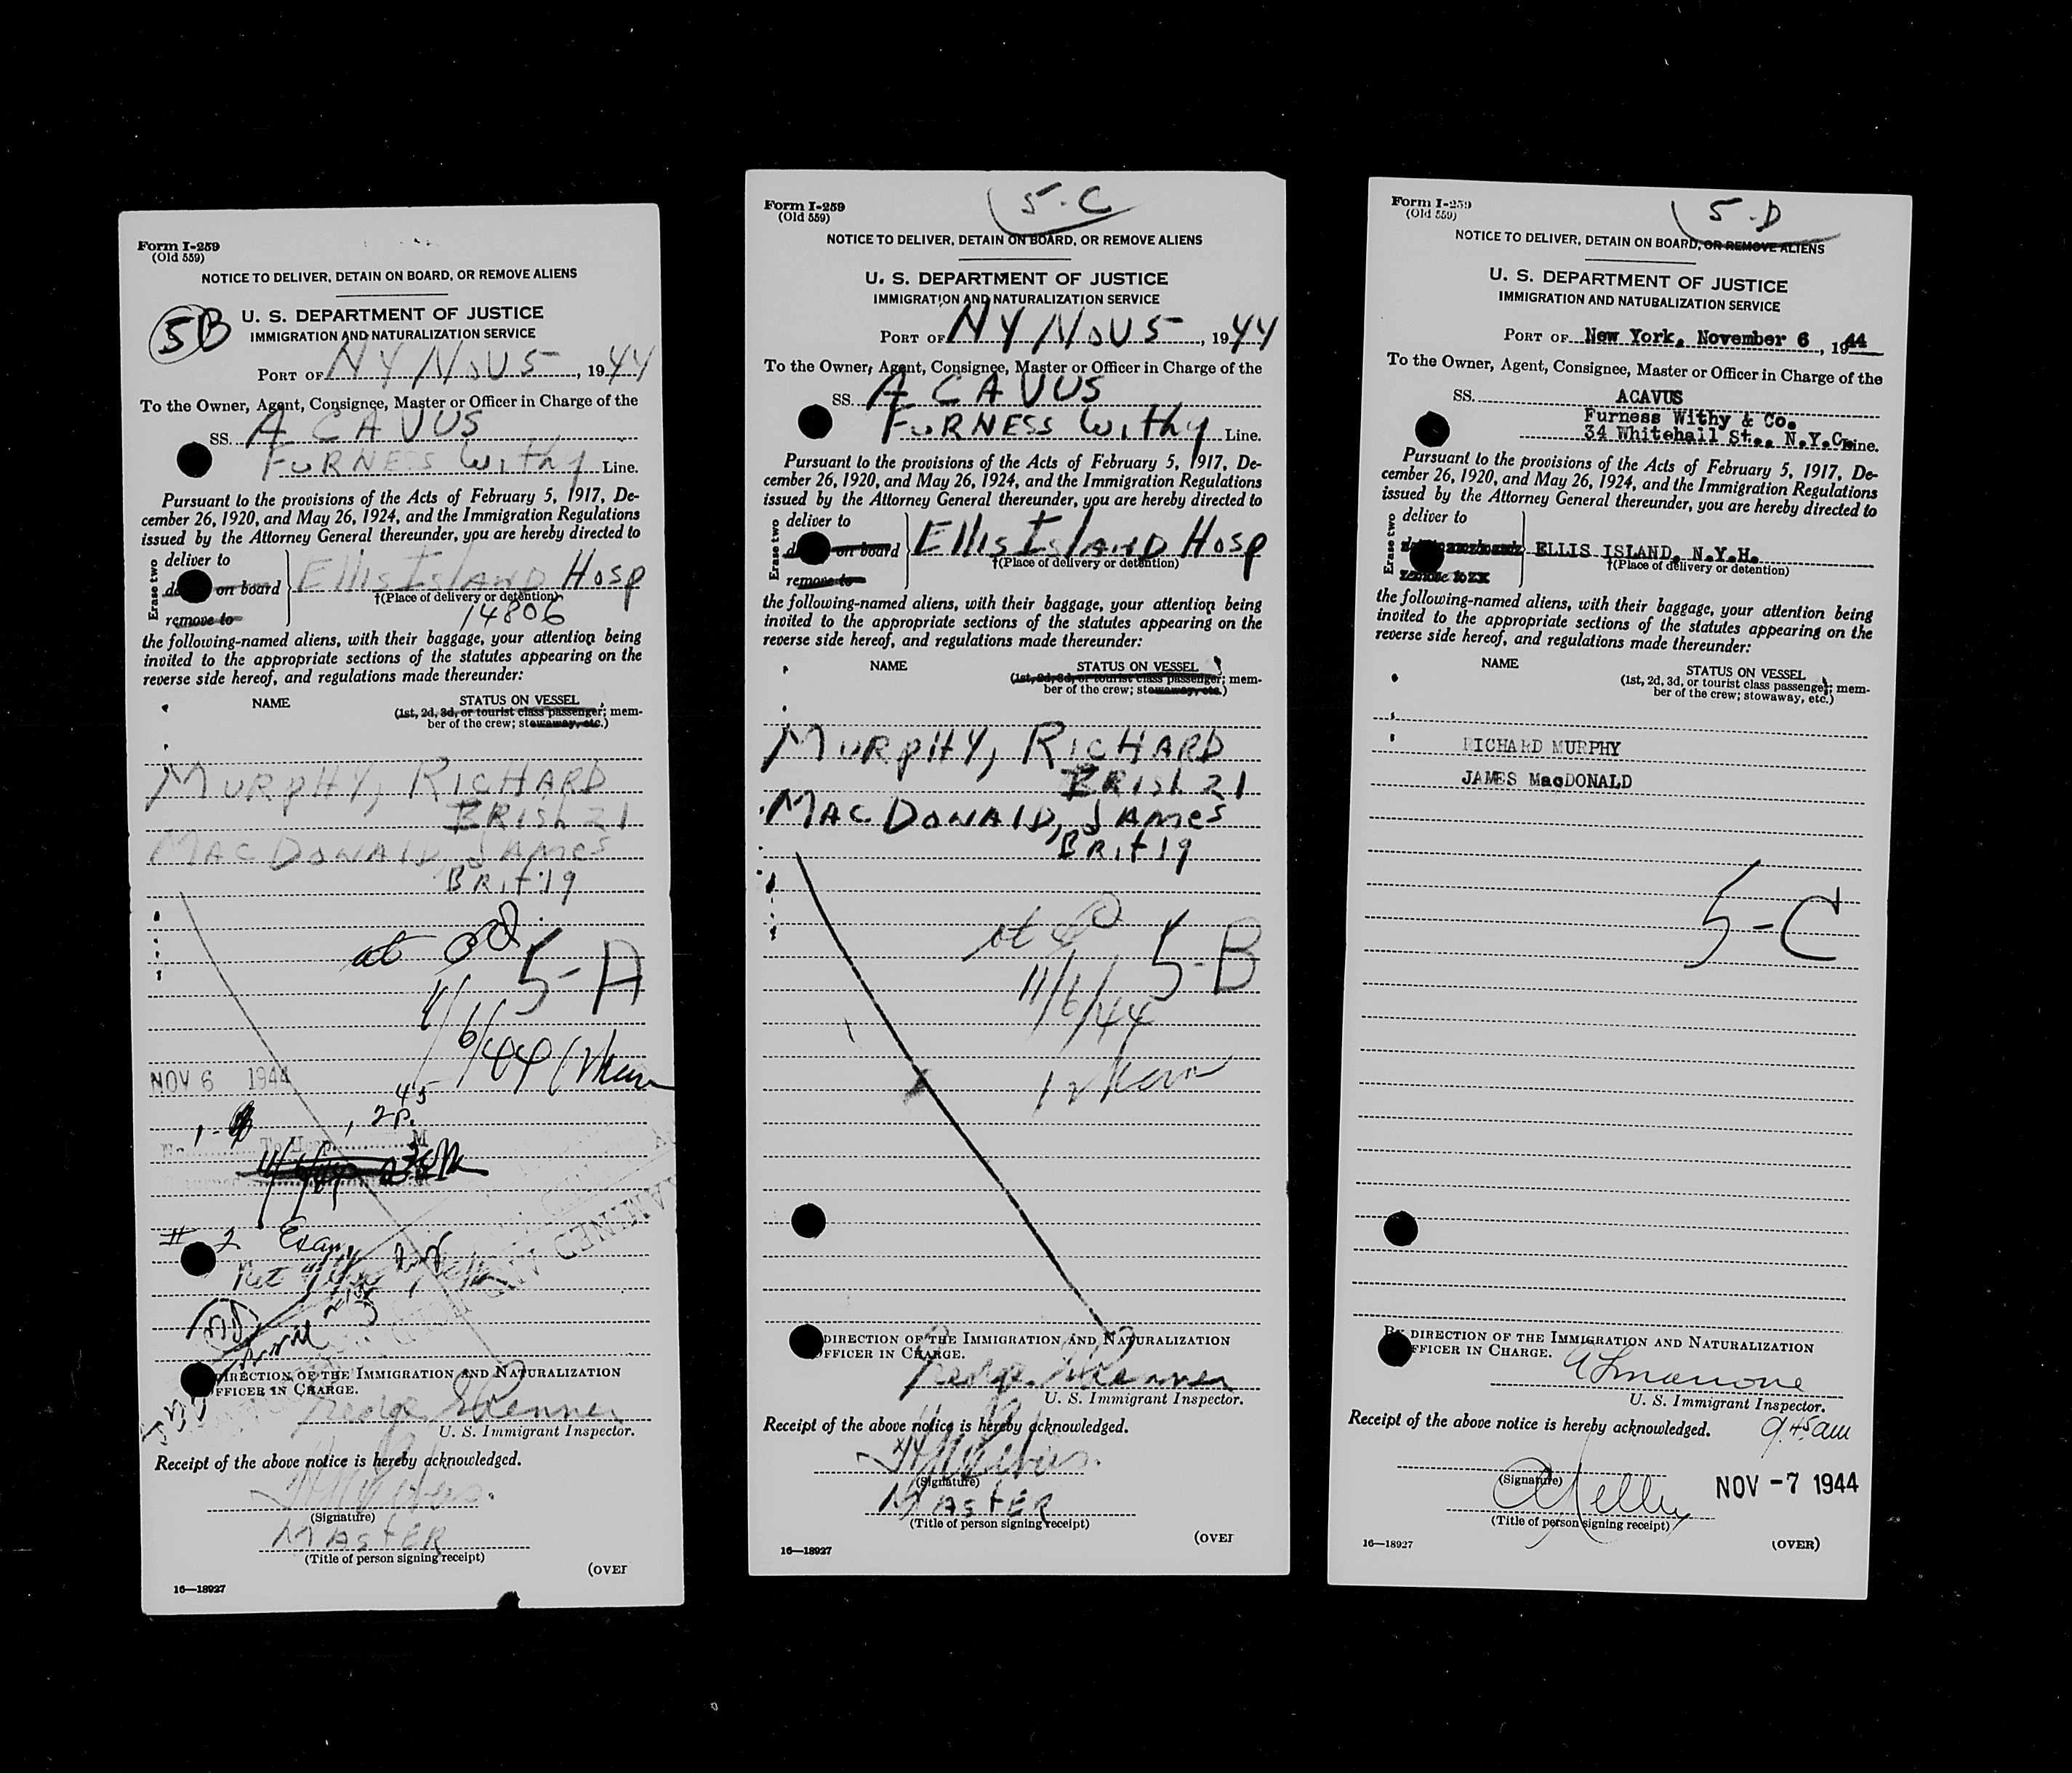 Form I-259
(Old 559)
NOTICE TO DELIVER, DETAIN ON BOARD, OR REMOVE ALIENS
5B
U. S. DEPARTMENT OF JUSTICE
IMMIGRATION AND NATURALIZATION SERVICE
PORT OF NY NOV 5, 1944
To the Owner, Agent, Consignee, Master or Officer in Charge of the
SS. ACAVUS
FURNESS Withy Line.
Pursuant to the provisions of the Acts of February 5, 1917, De-
cember 26, 1920, and May 26, 1924, and the Immigration Regulations
issued by the Attorney General thereunder, you are hereby directed to
Erase two
deliver to
on board
Ellis Island Hosp
†(Place of delivery or detention)
remove to
14806
the following-named aliens, with their baggage, your attention being
invited to the appropriate sections of the statutes appearing on the
reverse side hereof, and regulations made thereunder:
NAME
STATUS ON VESSEL
(1st, 2d, 3d, or tourist class passenger; mem-
ber of the crew; stowaway, etc.)
MURPHY, RICHARD
ERish 21
MACDONALD, JAMES
BRit 19
at
5-A
11/6/44
NOV 6 1944
45
1- , 2 P.
To Hosp. M
# 2 Exam
DIRECTION OF THE IMMIGRATION AND NATURALIZATION
OFFICER IN CHARGE.
U. S. Immigrant Inspector.
Receipt of the above notice is hereby acknowledged.
(Signature)
MASTER
(Title of person signing receipt)
(OVER
16—18927
Form I-259
(Old 559)
5-C
NOTICE TO DELIVER, DETAIN ON BOARD, OR REMOVE ALIENS
U. S. DEPARTMENT OF JUSTICE
IMMIGRATION AND NATURALIZATION SERVICE
PORT OF NY NOV 5, 1944
To the Owner, Agent, Consignee, Master or Officer in Charge of the
SS. ACAVUS
FURNESS Withy Line.
Pursuant to the provisions of the Acts of February 5, 1917, De-
cember 26, 1920, and May 26, 1924, and the Immigration Regulations
issued by the Attorney General thereunder, you are hereby directed to
Erase two
deliver to
on board
Ellis Island Hosp
†(Place of delivery or detention)
remove to
the following-named aliens, with their baggage, your attention being
invited to the appropriate sections of the statutes appearing on the
reverse side hereof, and regulations made thereunder:
NAME
STATUS ON VESSEL
(1st, 2d, 3d, or tourist class passenger; mem-
ber of the crew; stowaway, etc.)
MURPHY, RICHARD
ERish 21
MACDONALD, JAMES
BRit 19
at
5-B
11/6/44
DIRECTION OF THE IMMIGRATION AND NATURALIZATION
OFFICER IN CHARGE.
U. S. Immigrant Inspector.
Receipt of the above notice is hereby acknowledged.
(Signature)
MASTER
(Title of person signing receipt)
(OVER
16—18927
Form I-259
(Old 559)
5-D
NOTICE TO DELIVER, DETAIN ON BOARD, OR REMOVE ALIENS
U. S. DEPARTMENT OF JUSTICE
IMMIGRATION AND NATURALIZATION SERVICE
PORT OF New York, November 6, 1944
To the Owner, Agent, Consignee, Master or Officer in Charge of the
SS. ACAVUS
Furness Withy & Co.
34 Whitehall St., N.Y.C. Line.
Pursuant to the provisions of the Acts of February 5, 1917, De-
cember 26, 1920, and May 26, 1924, and the Immigration Regulations
issued by the Attorney General thereunder, you are hereby directed to
Erase two
deliver to
ELLIS ISLAND, N.Y.H.
†(Place of delivery or detention)
remove to
the following-named aliens, with their baggage, your attention being
invited to the appropriate sections of the statutes appearing on the
reverse side hereof, and regulations made thereunder:
NAME
STATUS ON VESSEL
(1st, 2d, 3d, or tourist class passenger; mem-
ber of the crew; stowaway, etc.)
RICHARD MURPHY
JAMES MacDONALD
5-C
By DIRECTION OF THE IMMIGRATION AND NATURALIZATION
OFFICER IN CHARGE.
U. S. Immigrant Inspector.
Receipt of the above notice is hereby acknowledged.
9.45am
(Signature)
NOV -7 1944
(Title of person signing receipt)
16—18927
(OVER)